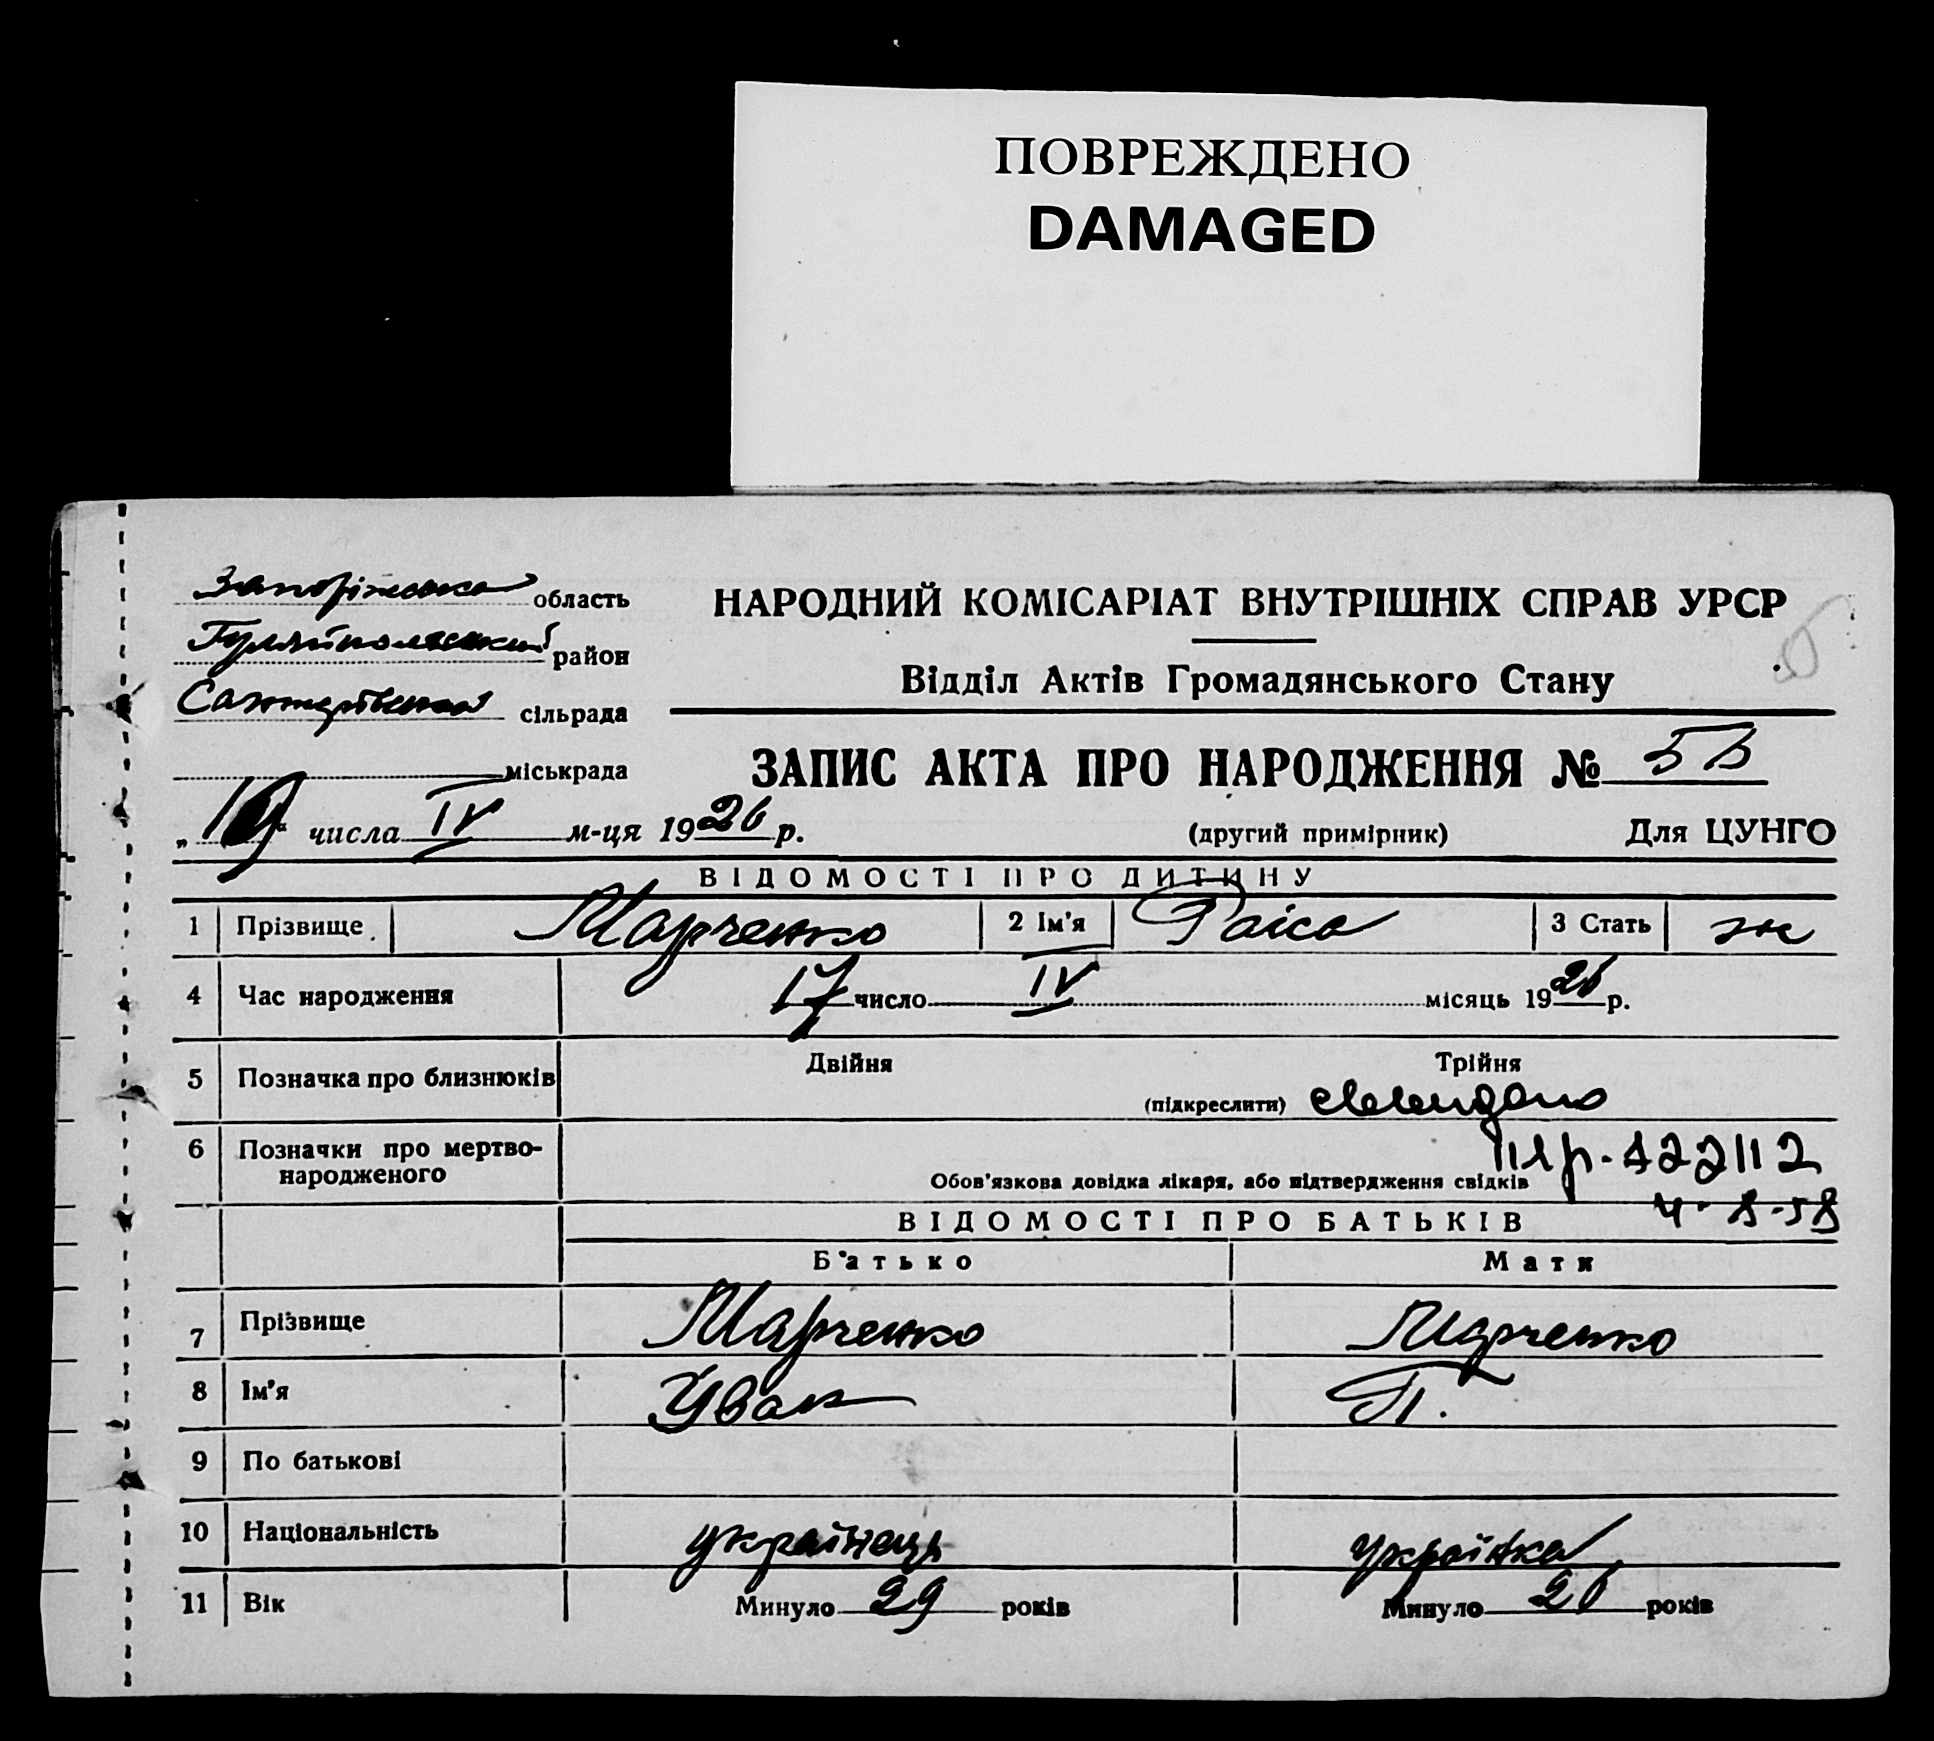 ПОВРЕЖДЕНО
DAMAGED
Запоріжська область
Гуляйпольський район
сільрада
міськрада
НАРОДНИЙ КОМІСАРІАТ ВНУТРІШНІХ СПРАВ УРСР
Відділ Актів Громадянського Стану
ЗАПИС АКТА ПРО НАРОДЖЕННЯ №
„ “ числа IV м-ця 1926 р.
(другий примірник) Для ЦУНГО
ВІДОМОСТІ ПРО ДИТИНУ
1 Прізвище Марченко 2 Ім'я Раїса 3 Стать ж
4 Час народження 17 число IV місяць 1926 р.
5 Позначка про близнюків Двійня Трійня
(підкреслити)
6 Позначки про мертво-
народженого
Обов'язкова довідка лікаря, або підтвердження свідків
4-8-58
ВІДОМОСТІ ПРО БАТЬКІВ
Батько Мати
7 Прізвище Марченко Марченко
8 Ім'я Іван П.
9 По батькові
10 Національність українець українка
11 Вік Минуло 29 років Минуло 26 років